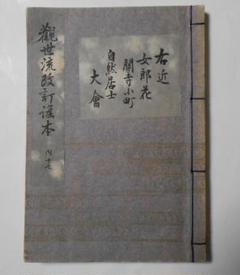 右近
女郎花
關寺小町
自然居士
大會
觀世流改訂謠本